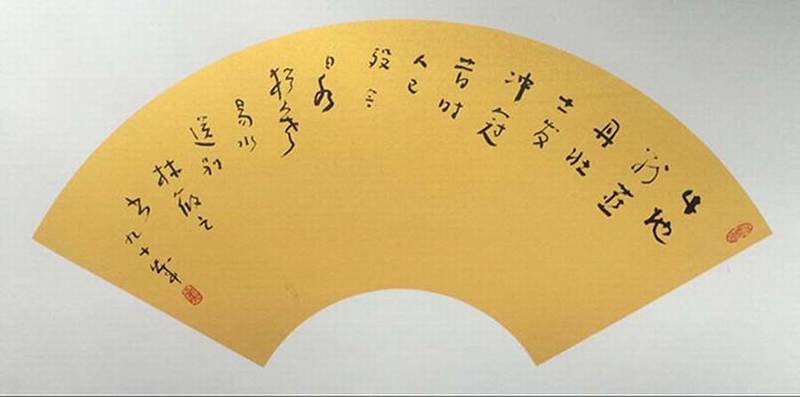 此地
别燕
丹壮
士发
冲冠
昔时
人已
没今
日水
犹寒
易水
送别
林筱之
书九十岁